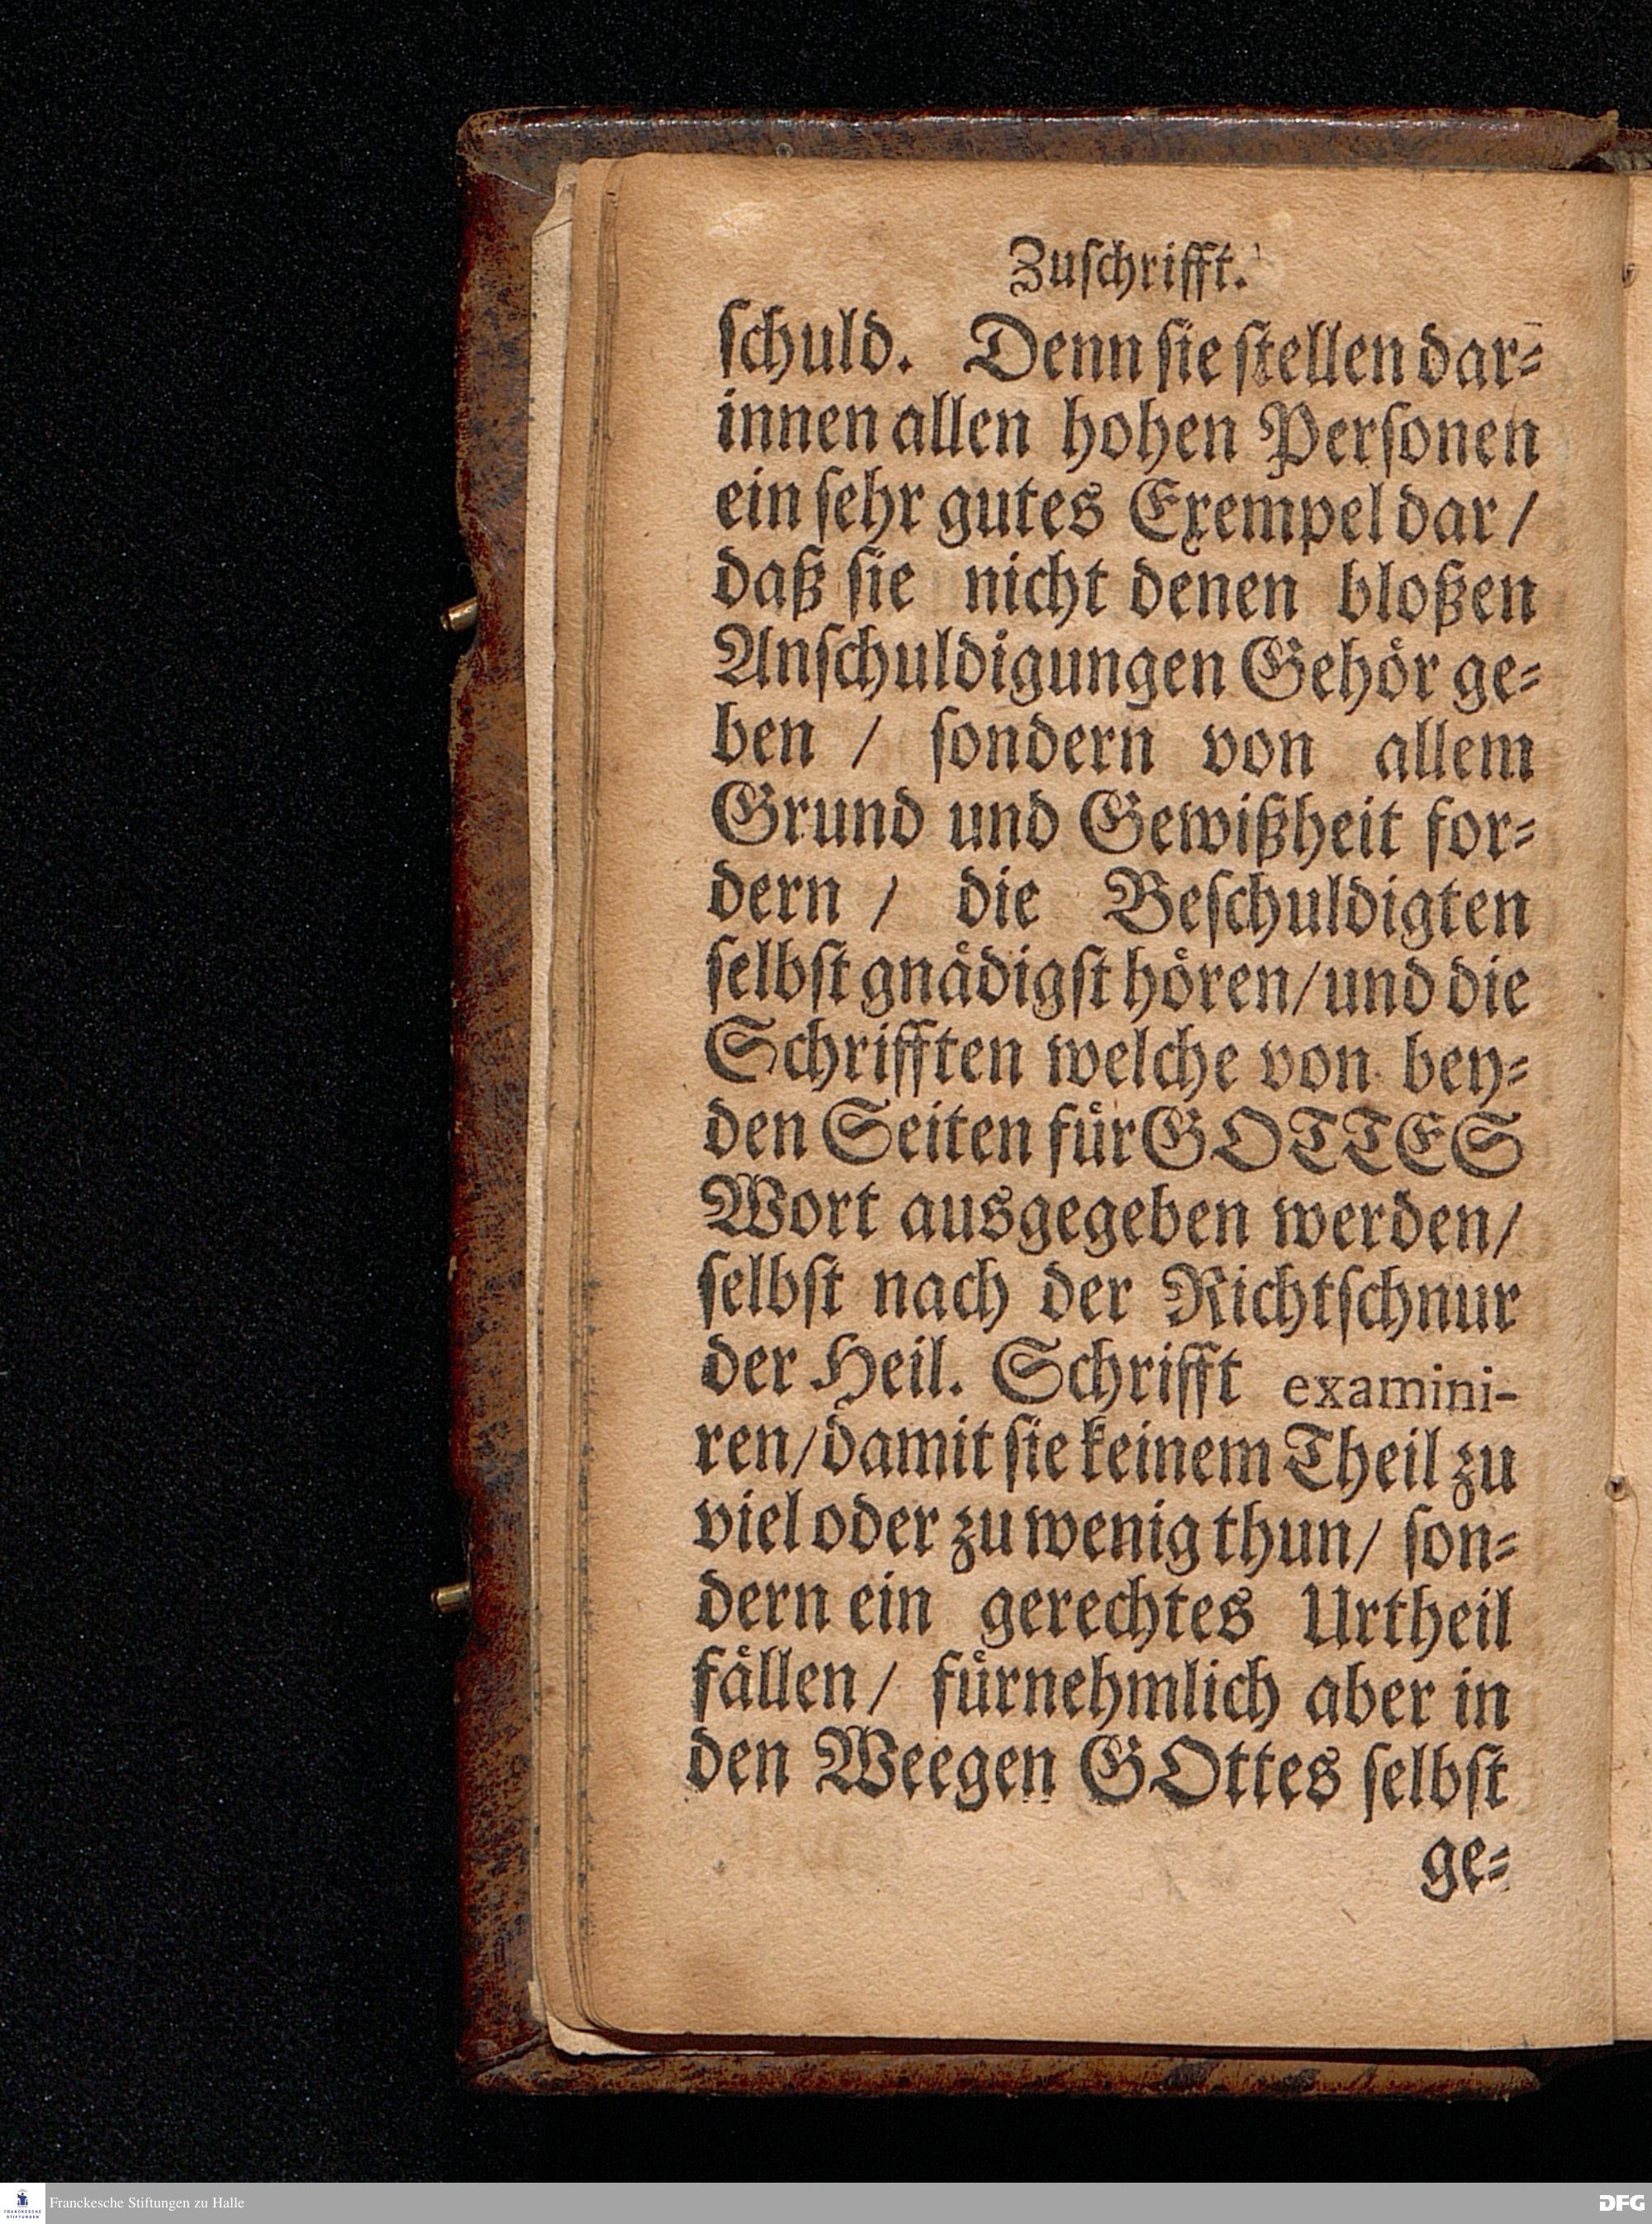 Zuſchrifft.
ſchuld. Denn ſie ſtellen dar⸗
innen allen hohen Perſonen
ein ſehr gutes Exempel dar /
daß ſie nicht denen bloßen
Anſchuldigungen Gehoͤr ge⸗
ben / ſondern von allem
Grund und Gewißheit for⸗
dern / die Beſchuldigten
ſelbſt gnaͤdigſt hoͤren / und die
Schrifften welche von bey⸗
den Seiten fuͤr GOTTES
Wort ausgegeben werden /
ſelbſt nach der Richtſchnur
der Heil. Schrifft examini-
ren / damit ſie keinem Theil zu
viel oder zu wenig thun / ſon⸗
dern ein gerechtes Urtheil
faͤllen / fuͤrnehmlich aber in
den Weegen GOttes ſelbſt
ge⸗
FRANCKESCHE
STIFTUNGEN
Franckesche Stiftungen zu Halle
DFG